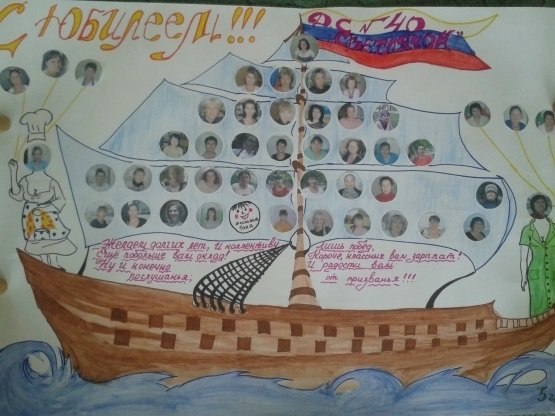 С ЮБИЛЕЕМ!!!
ДС №40
"Светлячок"
Желаем долгих лет, И коллективу
Ещё побольше вам оклад!
Ну и конечно
послушанья,
Лишь побед.
Короче, классных вам зарплат!
И радости вам
от призванья!!!